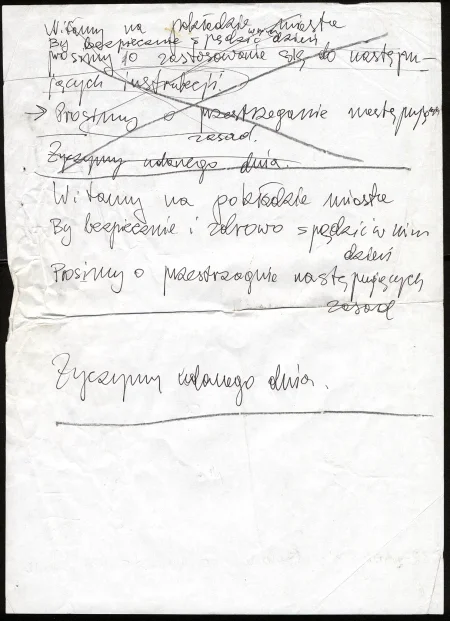 Witamy na pokładzie miasta
By bezpiecznie spędzić w nim dzień
prosimy o zastosowanie się do następu-
jących instrukcji.
→ Prosimy o przestrzeganie następujących
zasad.
Życzymy udanego dnia.
Witamy na pokładzie miasta
By bezpiecznie i zdrowo spędzić w nim
dzień
Prosimy o przestrzeganie następujących
zasad
Życzymy udanego dnia.